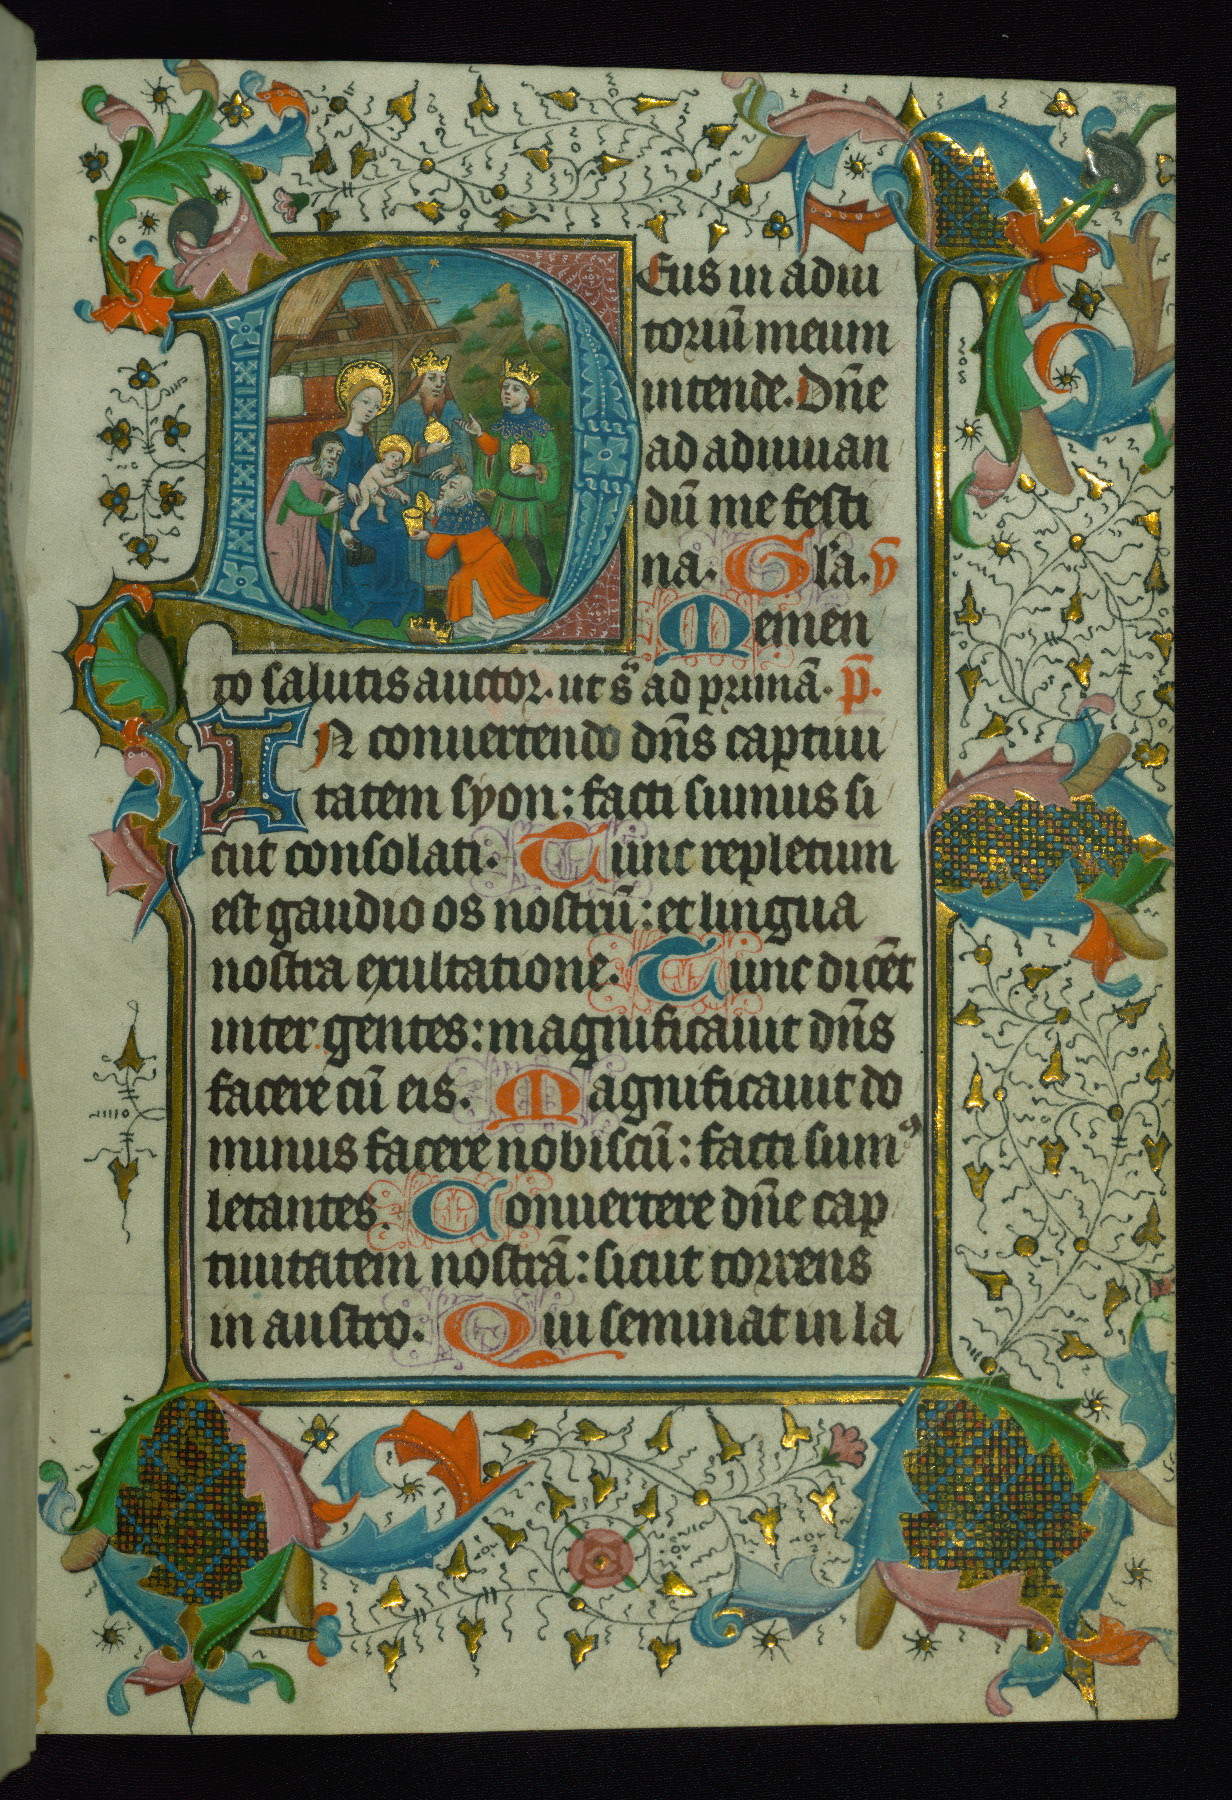 Deus in adiu
toriū meum
intende. Dn̄e
ad adiuuan
dū me festi
na. Gl'a. ȳ
Memen
to salutis auctor. ut s̄ ad primā. p̄.
IN conuertendo dn̄s captiui
tatem syon: facti sumus si
cut consolati. Tunc repletum
est gaudio os nostrū: et lingua
nostra exultatione. Tunc dicēt
inter gentes: magnificauit dn̄s
facere cū eis. Magnificauit do
minus facere nobiscū: facti sumꝰ
letantes. Conuertere dn̄e cap
tiuitatem nostrā: sicut torrens
in austro. Qui seminat in la